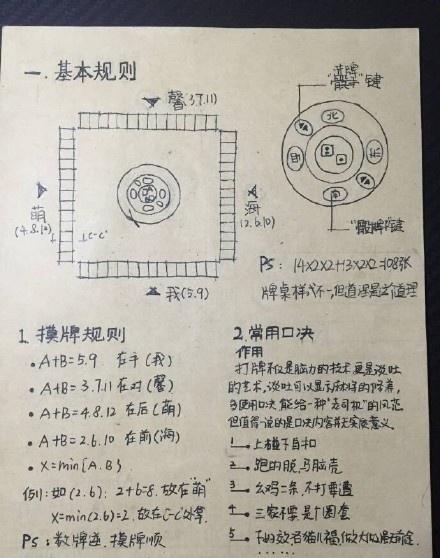 一. 基本规则
馨(3.7.11)
萌
(4.8.12)
海
(2.6.10)
我(5.9)
⊥C-C'
"洗牌
骰子"键
北
西
东
南
PS: 14×2×2+13×2×2=108张
牌桌样式不一,但道理是这个道理
1. 摸牌规则
• A+B=5.9 在手(我)
• A+B=3.7.11 在对(馨)
• A+B=4.8.12 在后(萌)
• A+B=2.6.10 在前(海)
• X=min{A.B}
例: 如(2.6): 2+6=8. 放在"萌"
X=min(2.6)=2. 放在C-C'处拿.
PS: 数牌逆. 摸牌顺
2. 常用口决
作用
打牌不仅是脑力的技术更是谈吐
的艺术,谈吐可以显示
使用口决 能给一种"老司机"的风范
但值得一说的是口决内容并无实质意义
1. 上碰下自和
2. 跑的脱,马脑壳
3. 幺鸡二条,不打要遭
4. 三家不要,是个圆套
5.